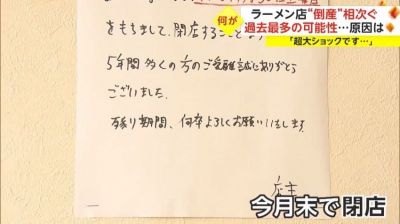 何が
ラーメン店“倒産”相次ぐ
過去最多の可能性…原因は
「超大ショックです…」
をもちまして、閉店すること
5年間多くの方のご愛顧誠にありがとう
ございました。
残り期間、何卒よろしくお願いいたします。
店主
今月末で閉店